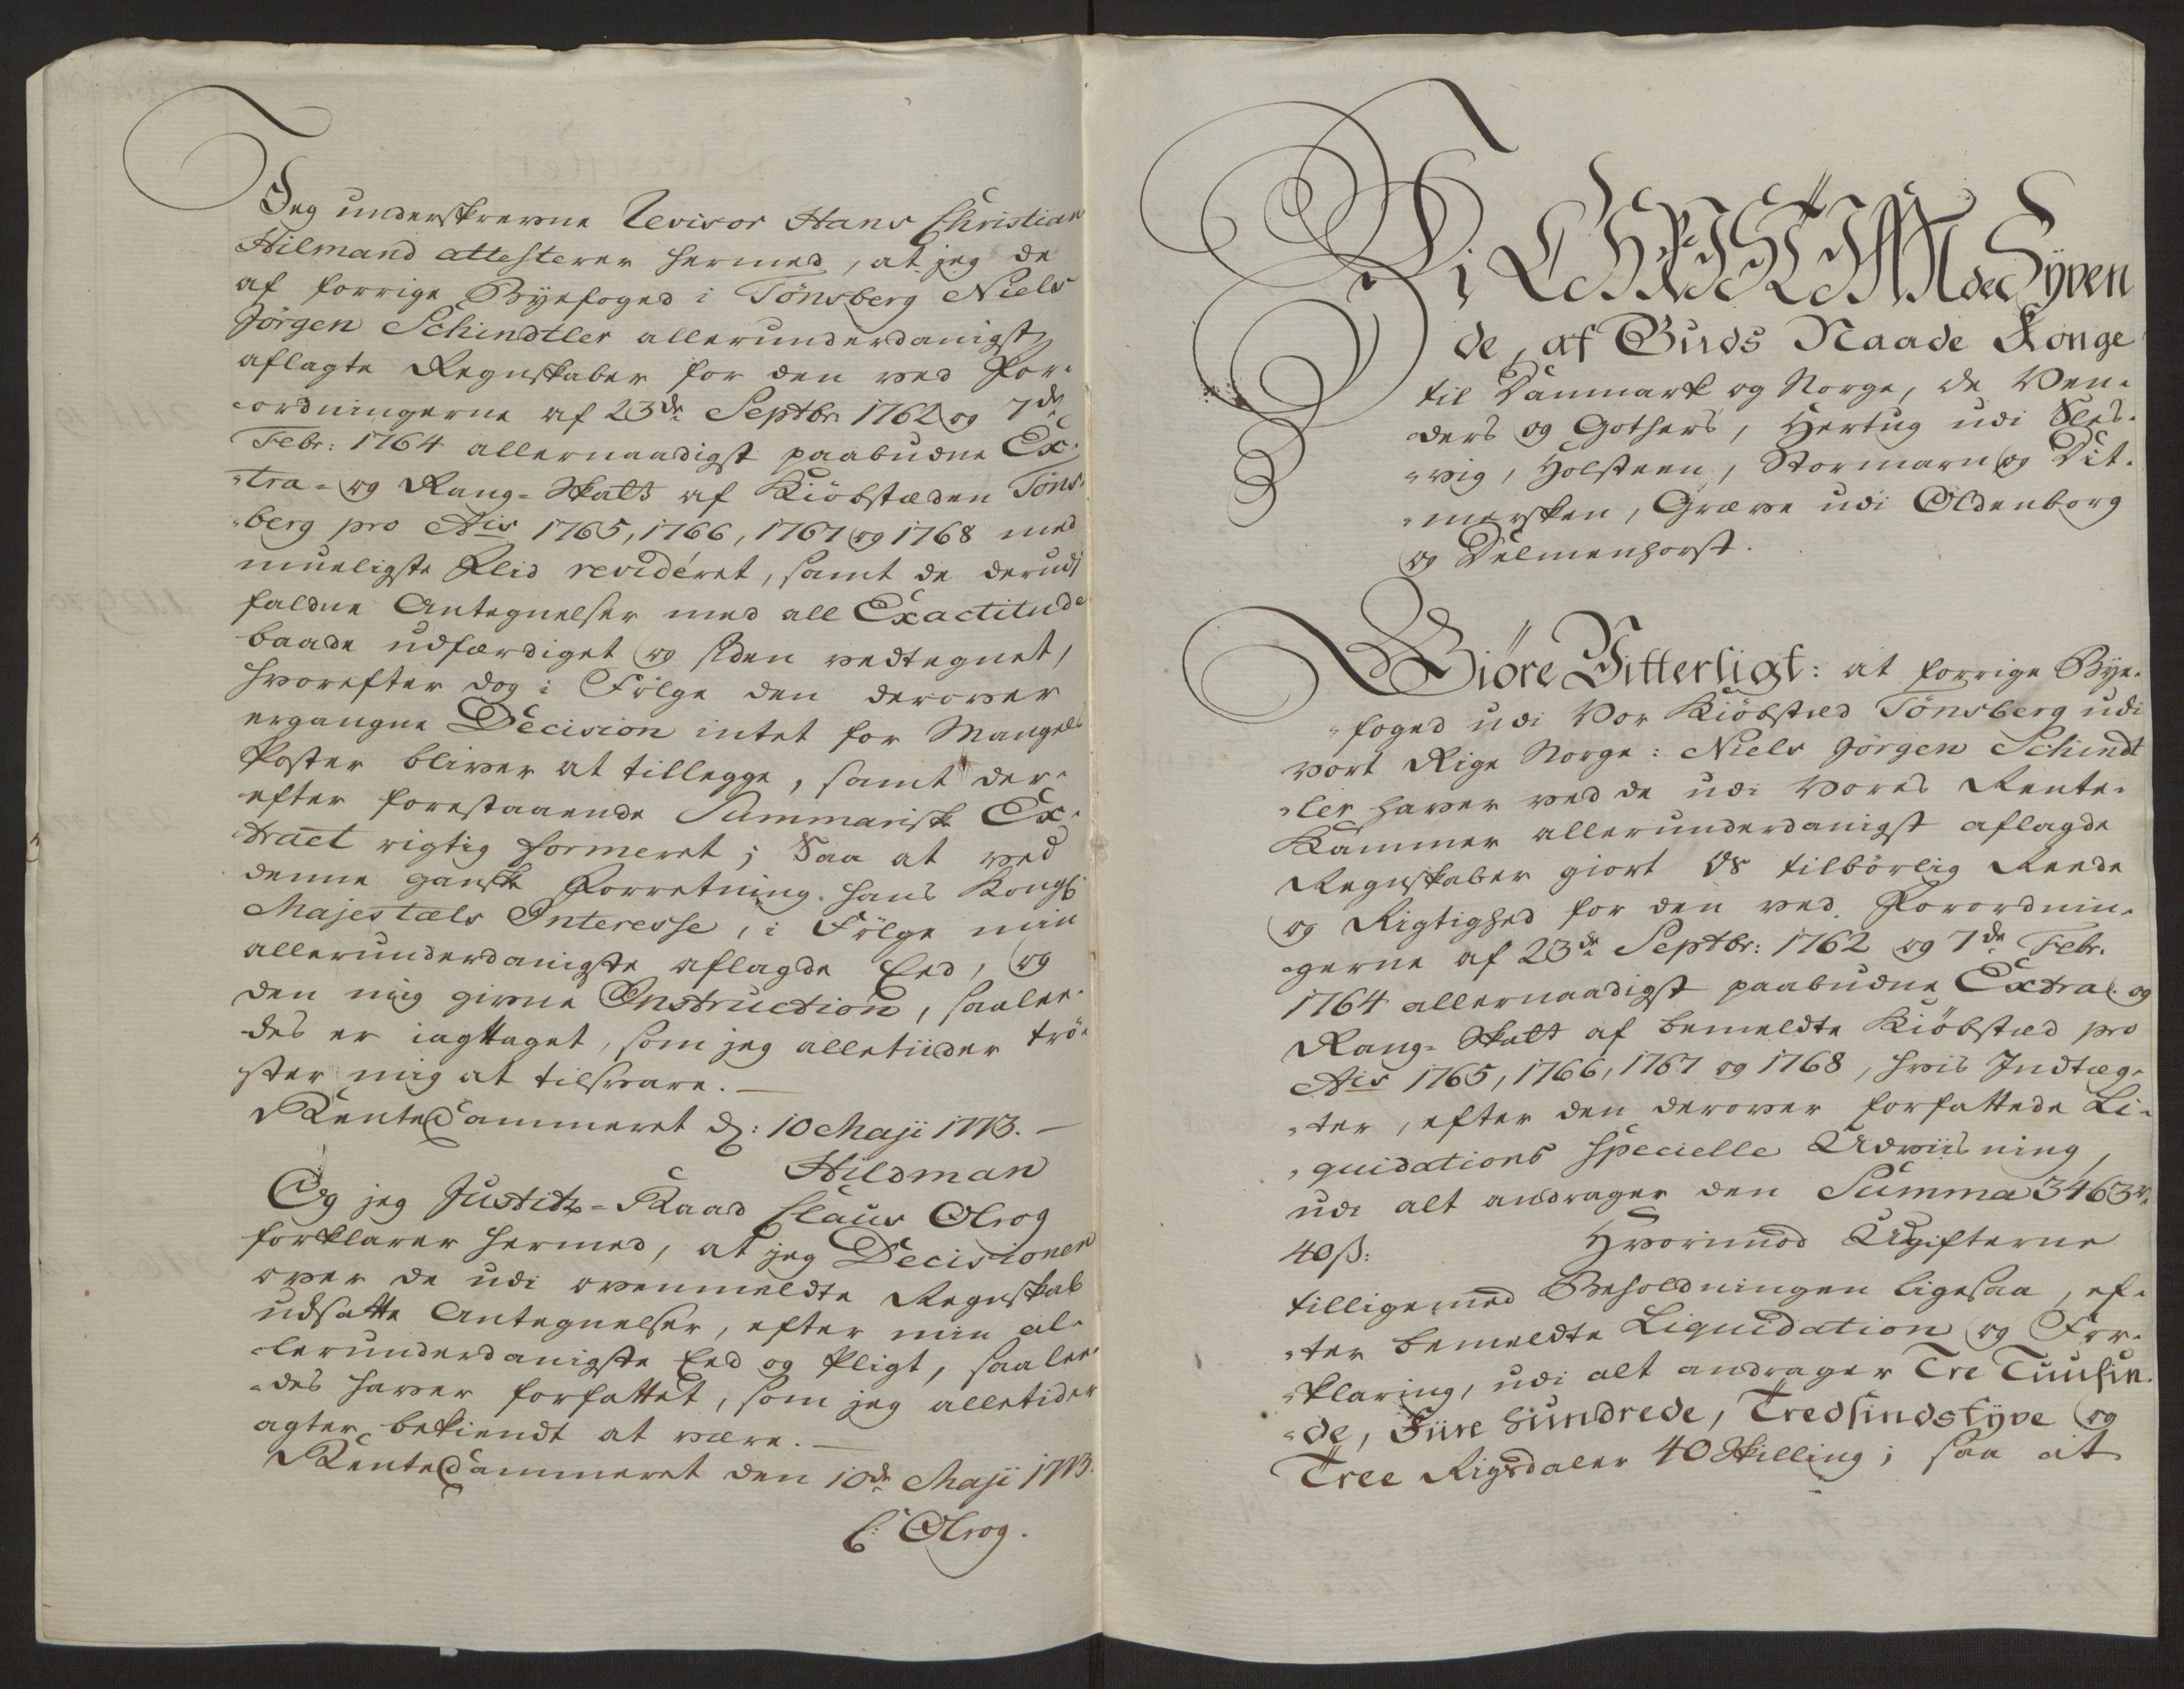 Jeg underskrevne Revisor Hans Christian
Hilmand attesterer hermed, at jeg de
af forrige Byefoged i Tönsberg Niels
Jörgen Schindtler allerunderdanigst
aflagte Regnskaber for den ved For-
-ordningerne af 23de Septbr 1762 og 7de
Febr: 1764 allernaadigst paabudne Ex-
-tra- og Rang-Skatt af Kiöbstæden Töns-
-berg pro Ais 1765, 1766, 1767 og 1768 med
mueligste Flid revidéret, samt de derudi
faldne Antegnelser med all Exactitude
baade udfærdiget og siden vedtegnet,
hvorefter dog i Fölge den derover
ergangne Decision intet for Mangels
Poster bliver at tillegge, samt der-
efter forestaaende Summarisk Ex-
tract rigtig formeret; Saa at ved
denne ganske Forretning hans Kongl:
Majestæts Interesse, i Fölge min
allerunderdanigste aflagde Eed, og
den mig givne Instruction, saale-
des er iagttaget, som jeg alletiider trö-
ster mig at tilsvare.
RenteCammeret d: 10 Maji 1773.
Hildman
Og jeg Justitz-Raad Claus Olrog
forklarer hermed, at jeg Decisionen
over de udi ovenmeldte Regnskab
udsatte Antegnelser, efter min al-
-lerunderdanigste Eed og Pligt, saale-
-des haver forfattet, som jeg alletider
agter bekiendt at være.
RenteCammeret den 10de Maji 1773.
C: Olrog.
Vi CHRISTIAN den Syven
de, af Guds Naade Konge
til Danmark og Norge, de Ven-
-ders og Gothers, Hertug udi Sles-
-vig, Holsteen, Stormarn og Dit-
-mersken, Græve udi Oldenborg
og Delmenhorst.
Giöre Vitterligt: at forrige Bye-
-foged udi Vor Kiöbstæd Tönsberg udi
vort Rige Norge: Niels Jörgen Schindt
-ler haver ved de udi Vores Rente-
Kammer allerunderdanigst aflagde
Regnskaber giort Os tilbörlig Reede
og Rigtighed for den ved Forordnin-
-gerne af 23de Septbr: 1762 og 7de Febr.
1764 allernaadigst paabudne Extra- og
Rang-Skatt af bemeldte Kiöbstæd pro
Ais 1765, 1766, 1767 og 1768, hvis Indtæg-
-ter, efter den derover forfattede Li-
-quidations specielle Udviisning,
udi alt andrager den Summa 3463 r.
40ß: Hvorimod Udgifterne
tilligemed Beholdningen ligesaa, ef-
-ter bemeldte Liquidation og For-
-klaring, udi alt andrager Tre Tuusin-
-de, Fiire hundrede, Tredsindstyve og
Tree Rigsdaler 40 Skilling; saa at